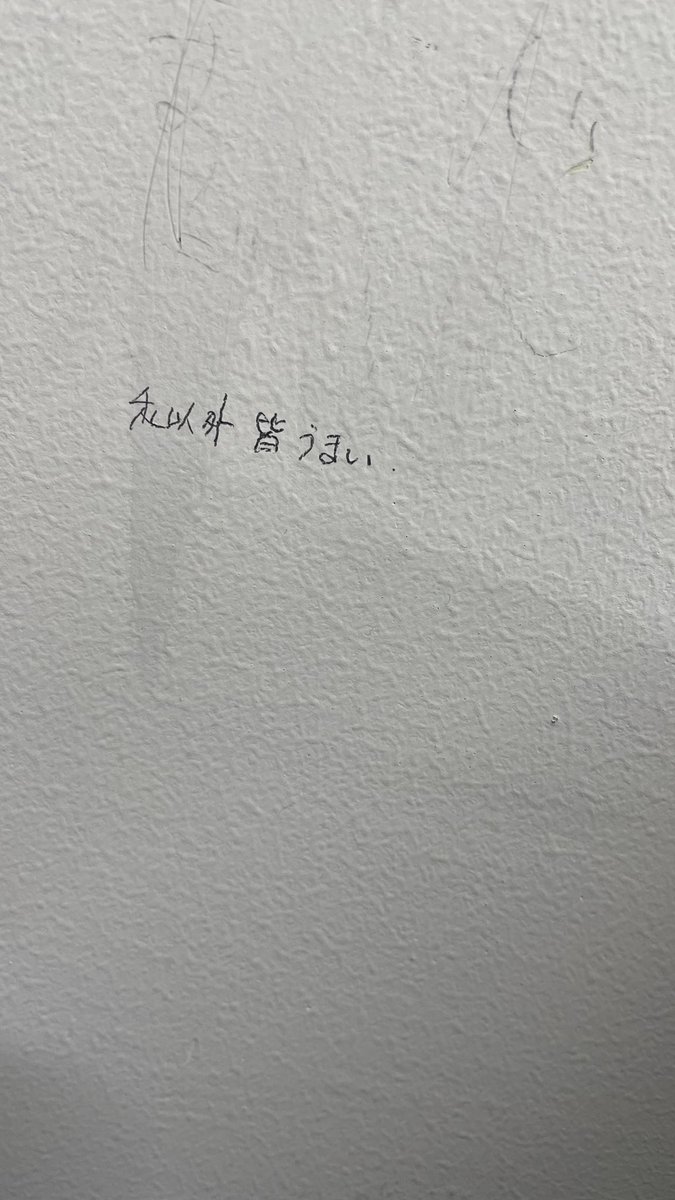 私以外皆うまい